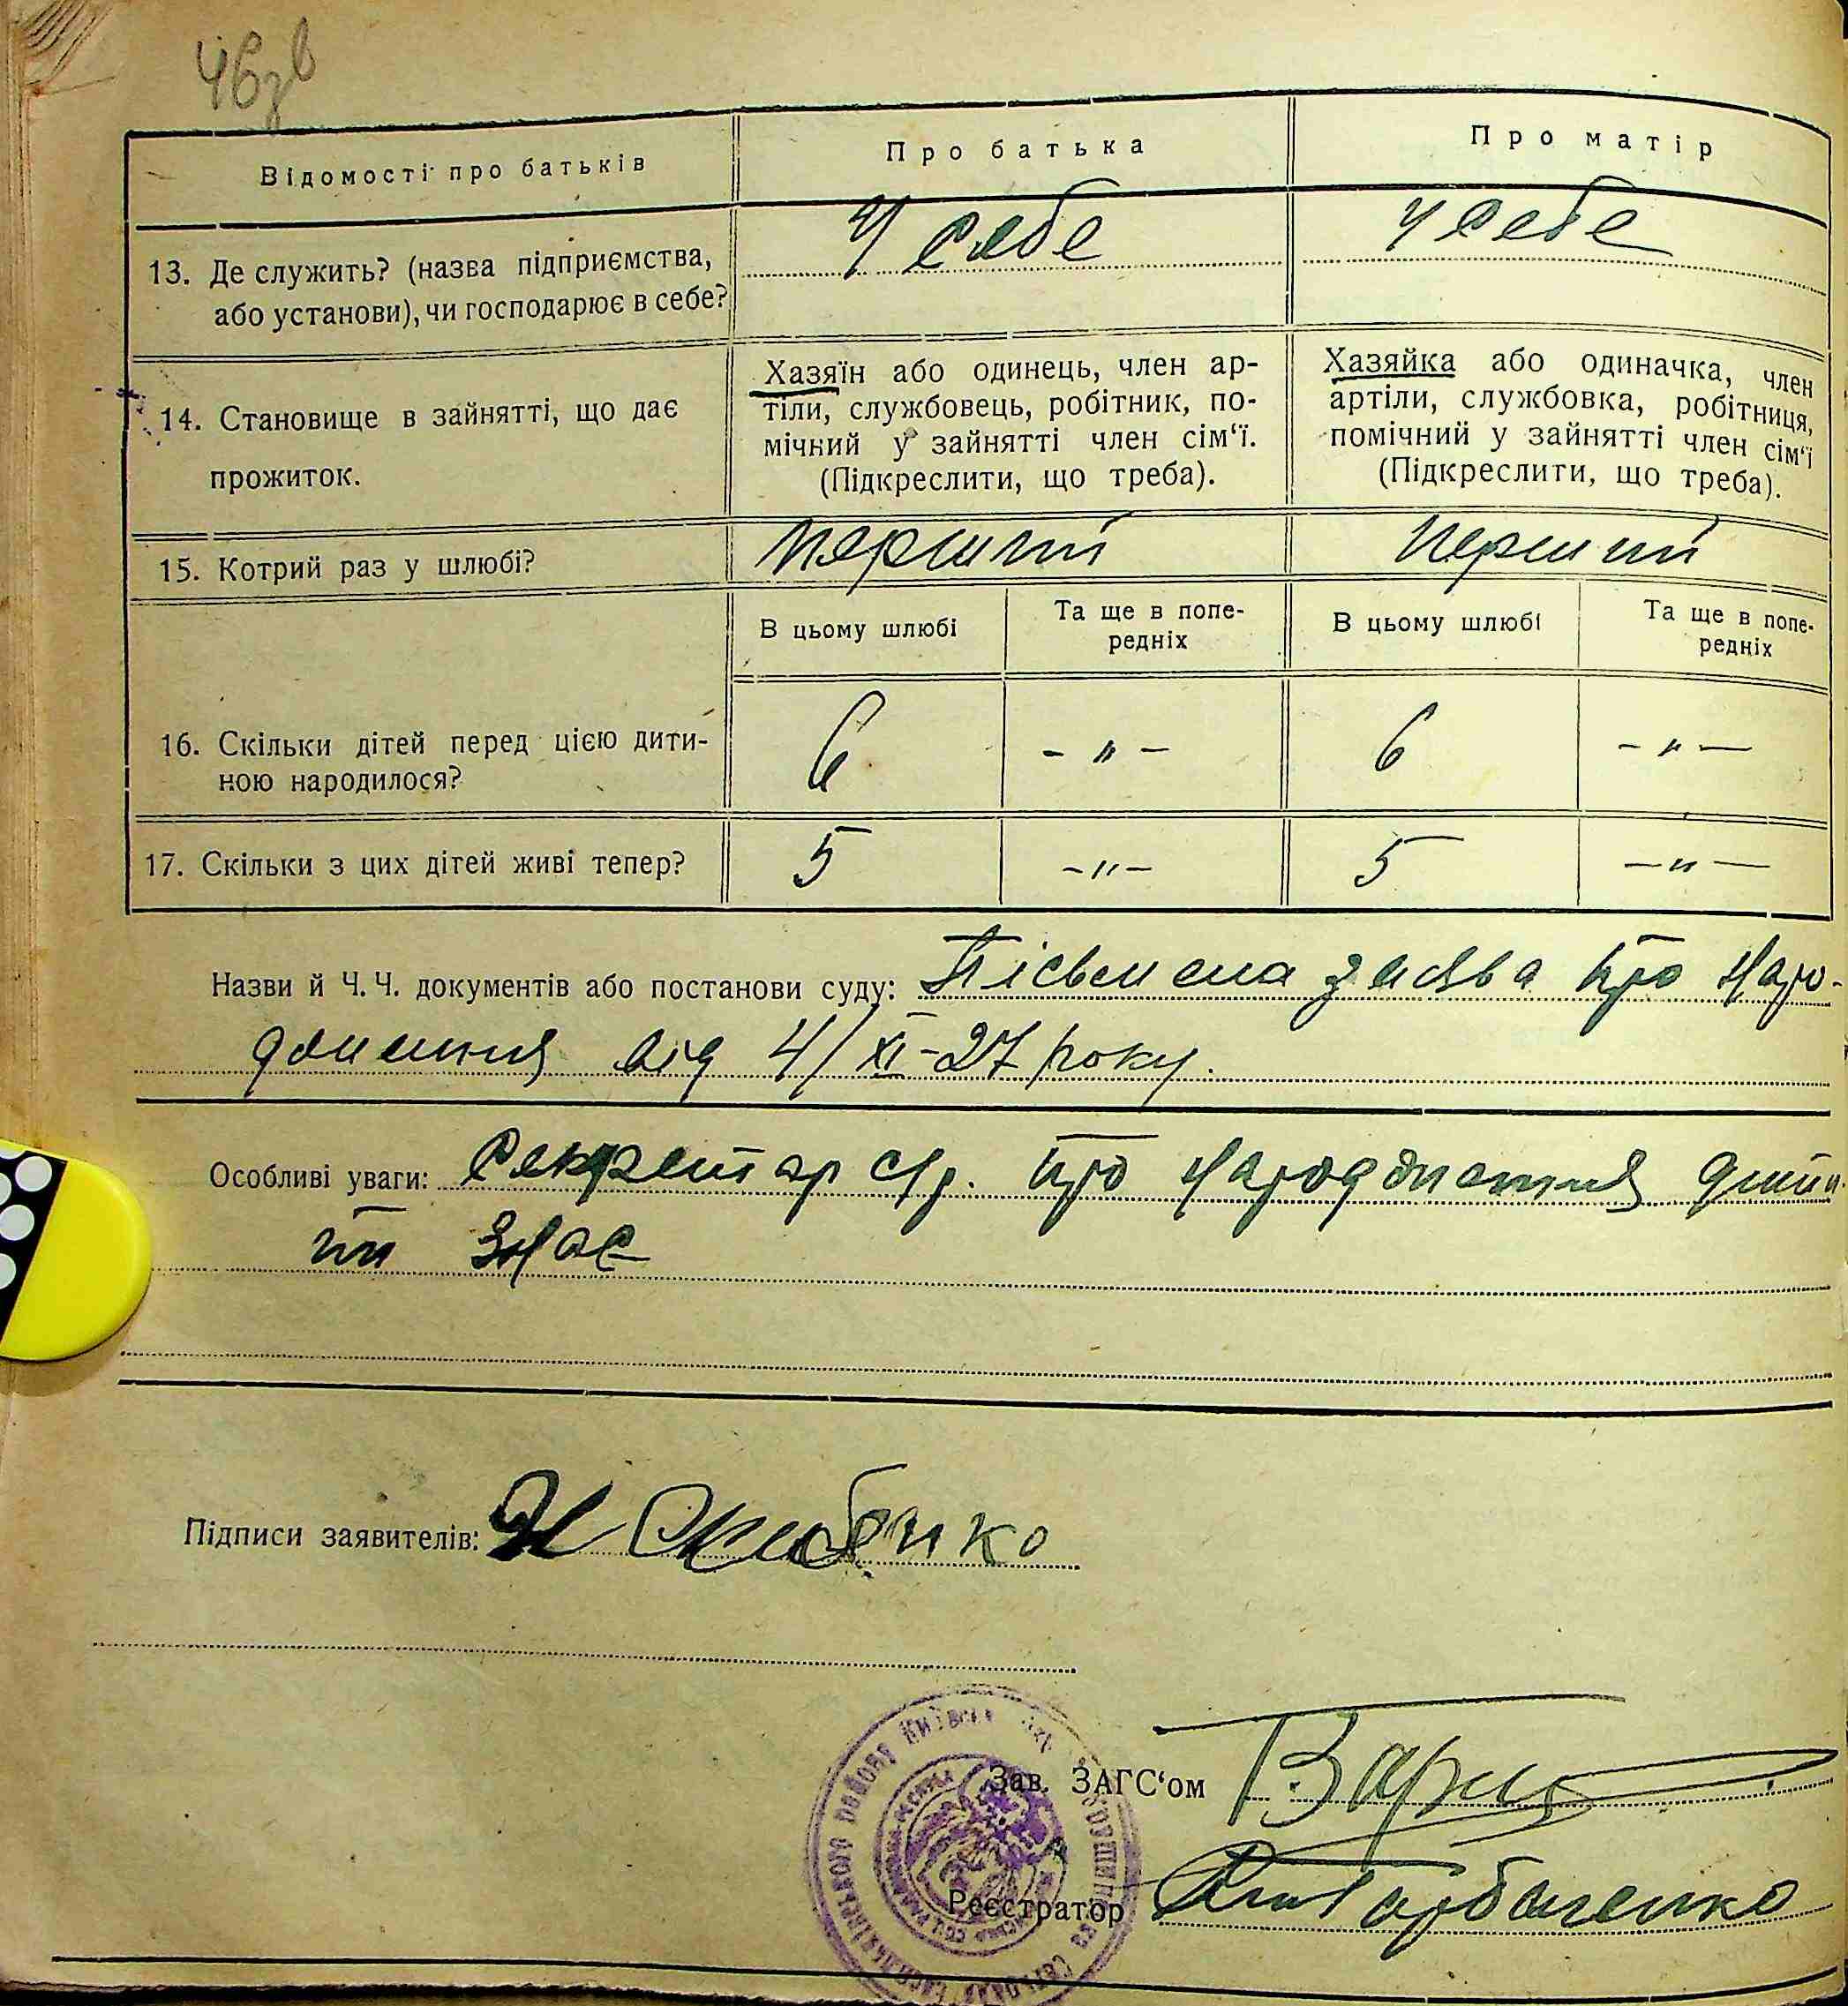 46зв
Відомості про батьків
Про батька
Про матір
13. Де служить? (назва підприємства,
або установи), чи господарює в себе?
У себе
У себе
14. Становище в зайнятті, що дає
прожиток.
Хазяїн або одинець, член ар-
тіли, службовець, робітник, по-
мічний у зайнятті член сім‘ї.
(Підкреслити, що треба).
Хазяйка або одиначка, член
артіли, службовка, робітниця,
помічний у зайнятті член сім‘ї
(Підкреслити, що треба).
15. Котрий раз у шлюбі?
перший
перший
В цьому шлюбі
Та ще в попе-
редніх
В цьому шлюбі
Та ще в попе-
редніх
16. Скільки дітей перед цією дити-
ною народилося?
6
- " -
6
- " -
17. Скільки з цих дітей живі тепер?
5
- " -
5
- " -
Назви й Ч. Ч. документів або постанови суду: Пісьмена заява про наро-
дження від 4/XI-27 року.
Особливі уваги: Секретар с/р. про народження дити-
ни знає
Підписи заявителів:
Зав. ЗАГС‘ом
Реєстратор Горбаченко